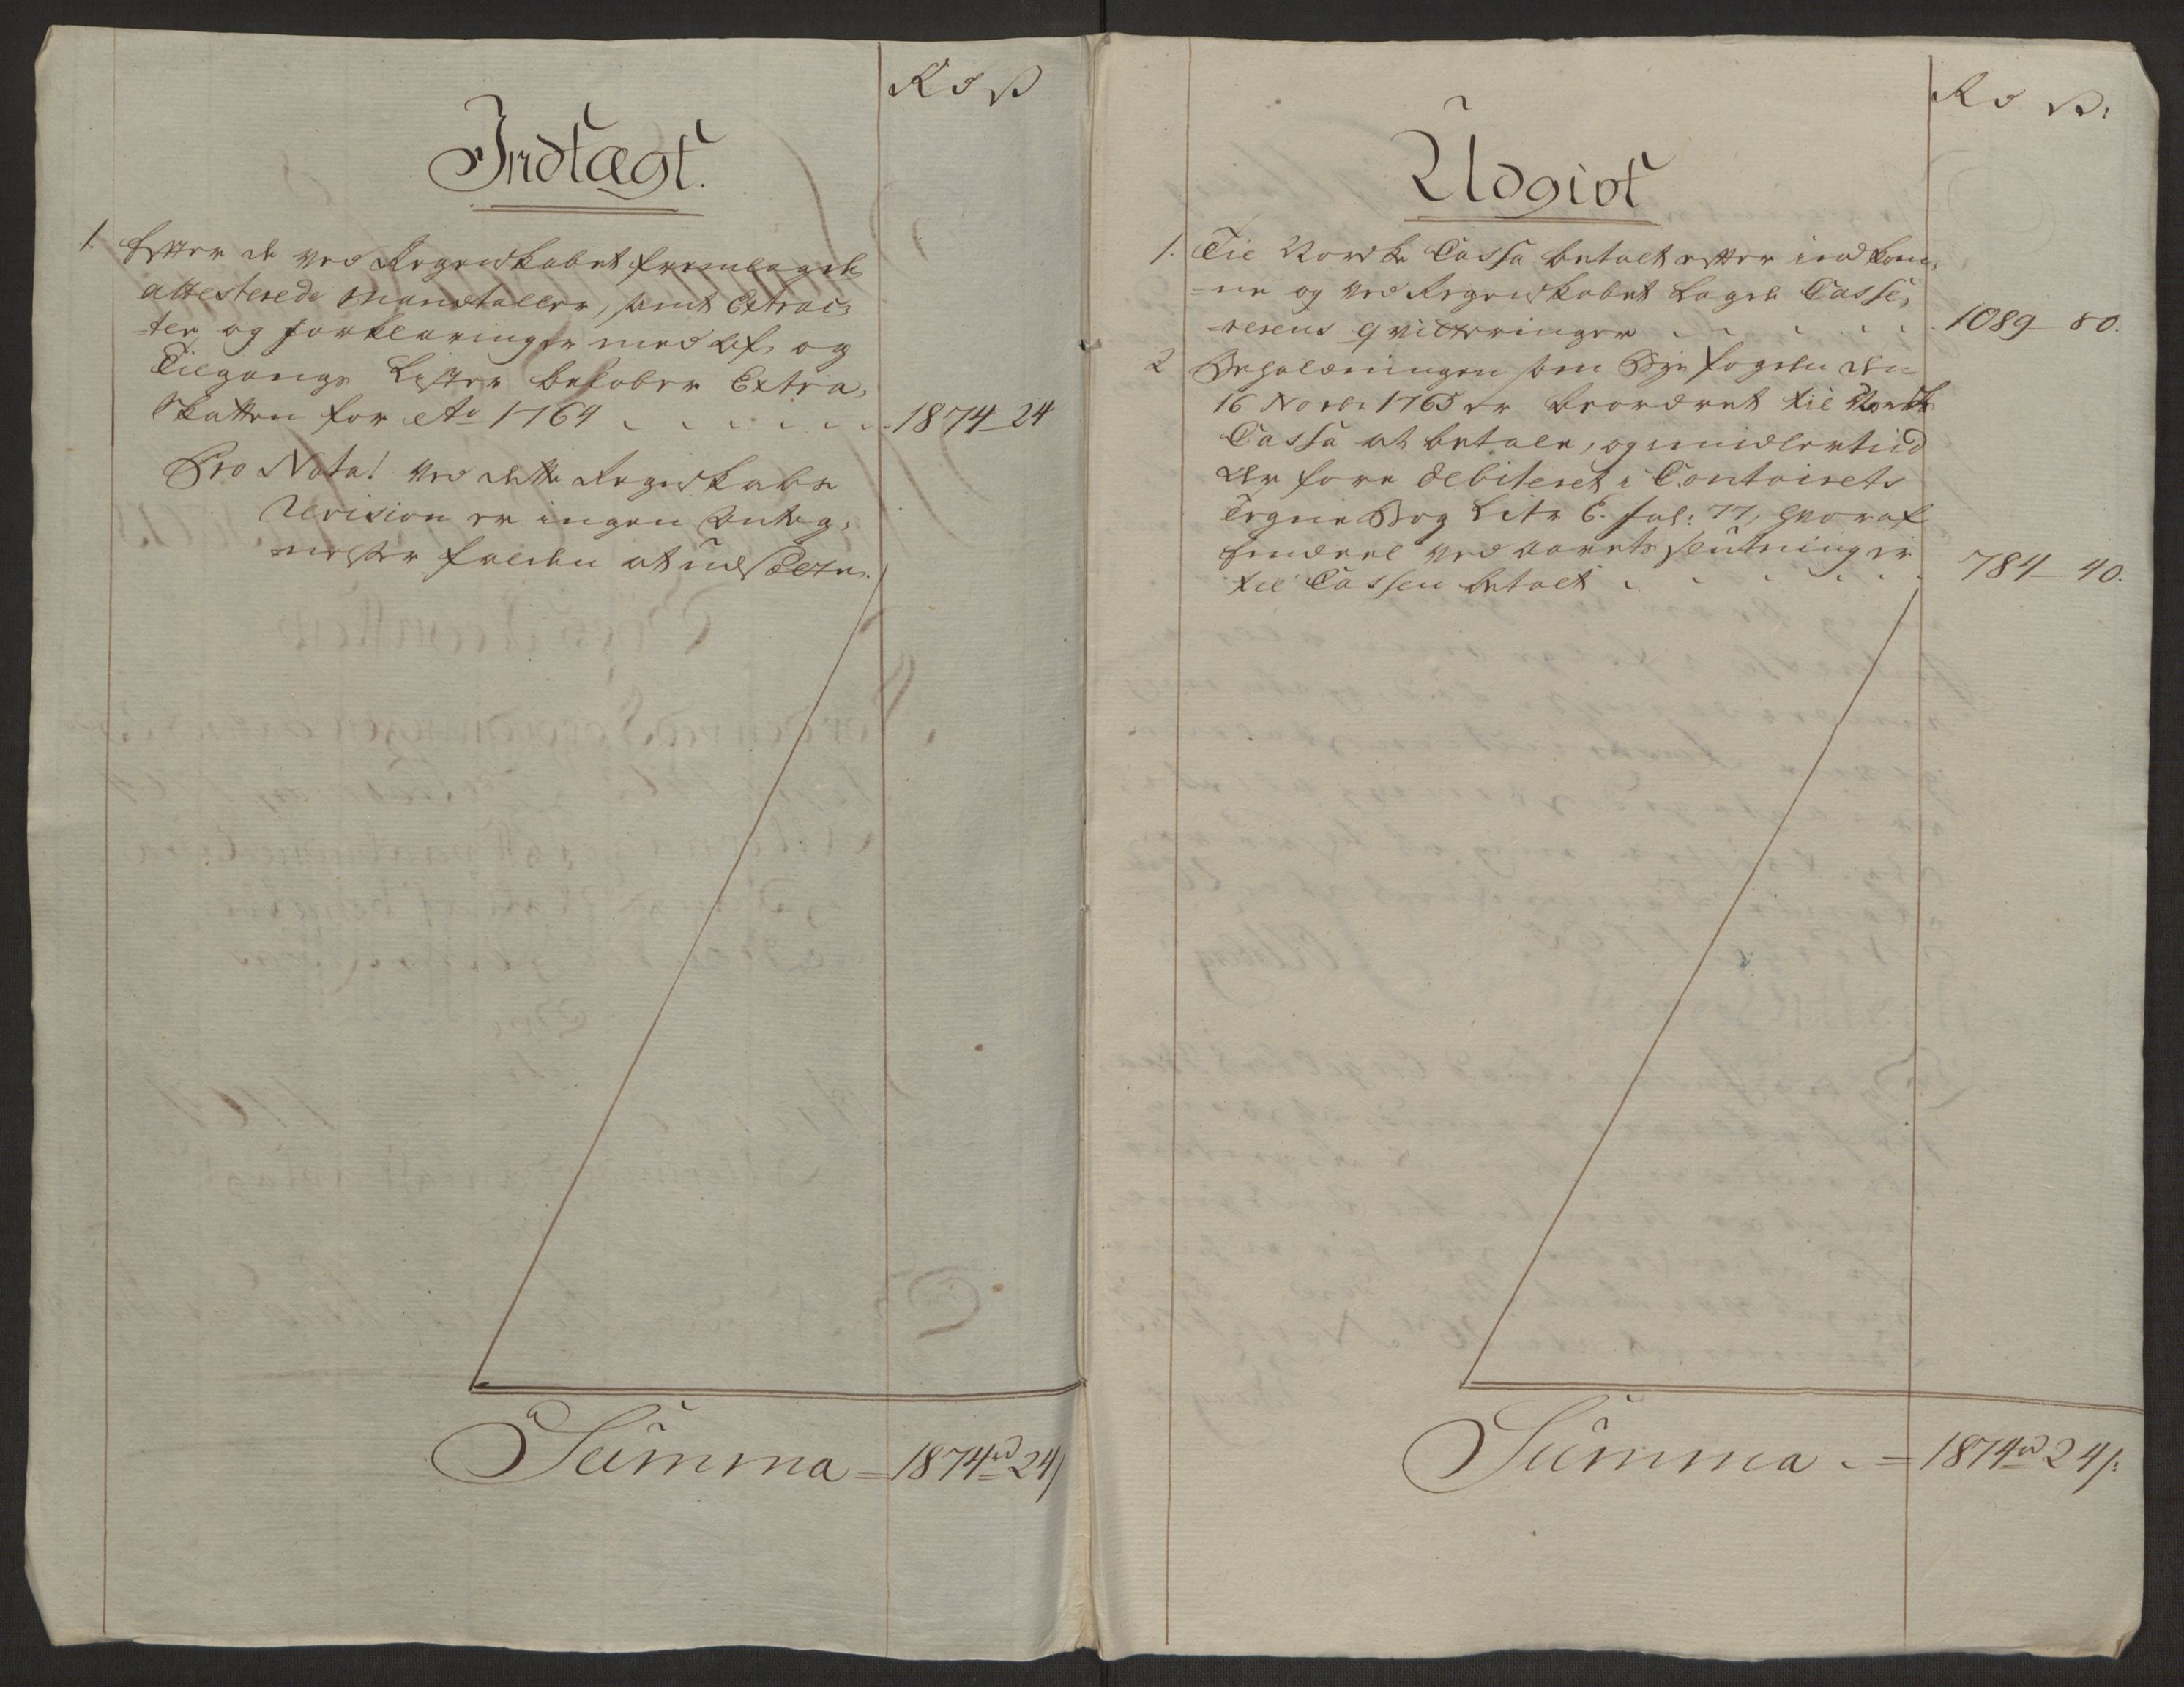 Rd ß
Indtægt.
1. Efter de ved Regenskabet fremlagde
attesterede Mandtaller, samt Extrac-
-ter og forklaringer med Af- og
Tilgangs Lister beløber Extra-
Skatten for Ao 1764 1874 - 24
Pro Nota! Ved dette Regnskabs
Revision er ingen Anteg-
nelser falden at udsætte.
Summa = 1874 rd 24 ß
Rd ß:
Udgivt
1. Til Norske Cassa betalt efter indkom-
-ne og ved Regenskabet lagde Casse-
rerens qvitteringer 1089 - 80.
2 Beholdningen som Bye fogden den
16 Novbr 1765 er beordret til Norske
Cassa at betale, og imidlertiid
der fore debiteret i Contoirets
Tegne Bog Litr E. fol: 77, hvoraf
endeel ved aarets slutning er
til Cassen betalt 784 - 40.
Summa = 1874 rd 24 ß: